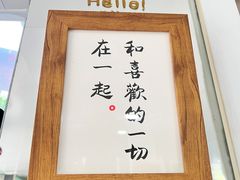 Hello!
和喜歡的一切
在一起